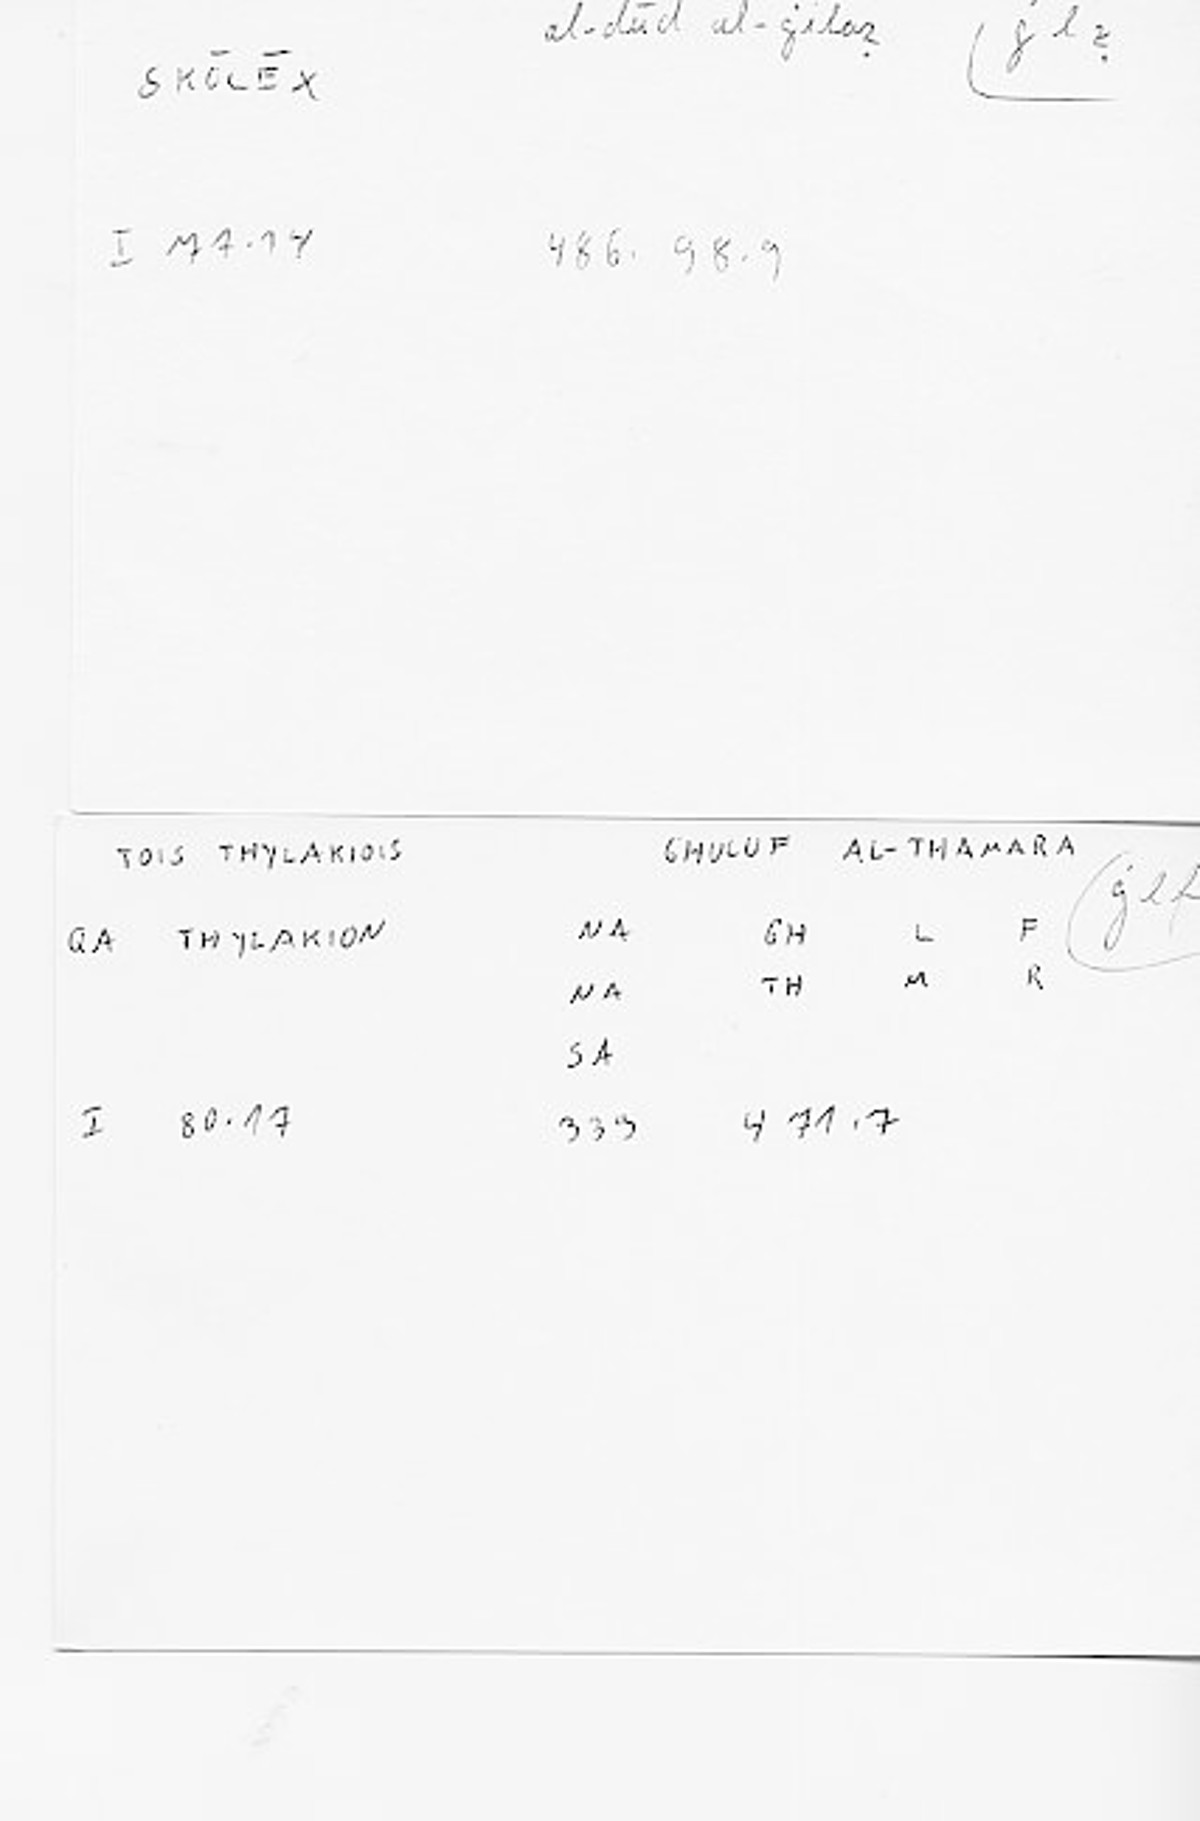 al-dūd al-ġilaẓ (ġ l ẓ
SKŌLĒX
I 117.14 486. 98.9
TOIS THYLAKIOIS GHULUF AL-THAMARA (ġ l f
QA THYLAKION NA GH L F
NA TH M R
SA
I 80.17 333 471.7